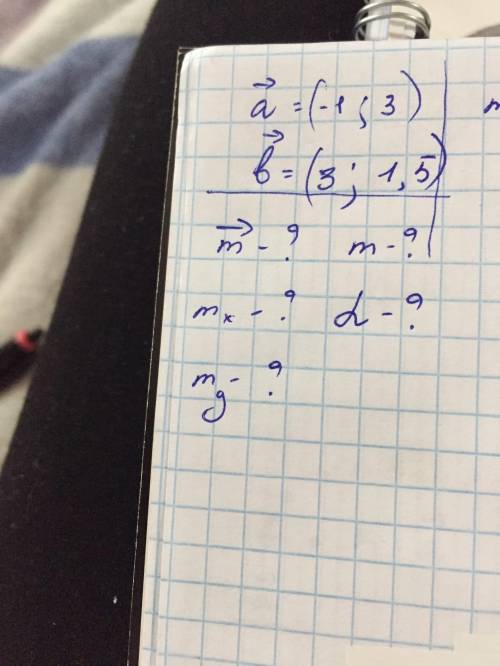 a⃗ = (-1 ; 3)
b⃗ = (3 ; 1,5)
m⃗ - ? m - ?
mₓ - ? α - ?
m_y - ?
m